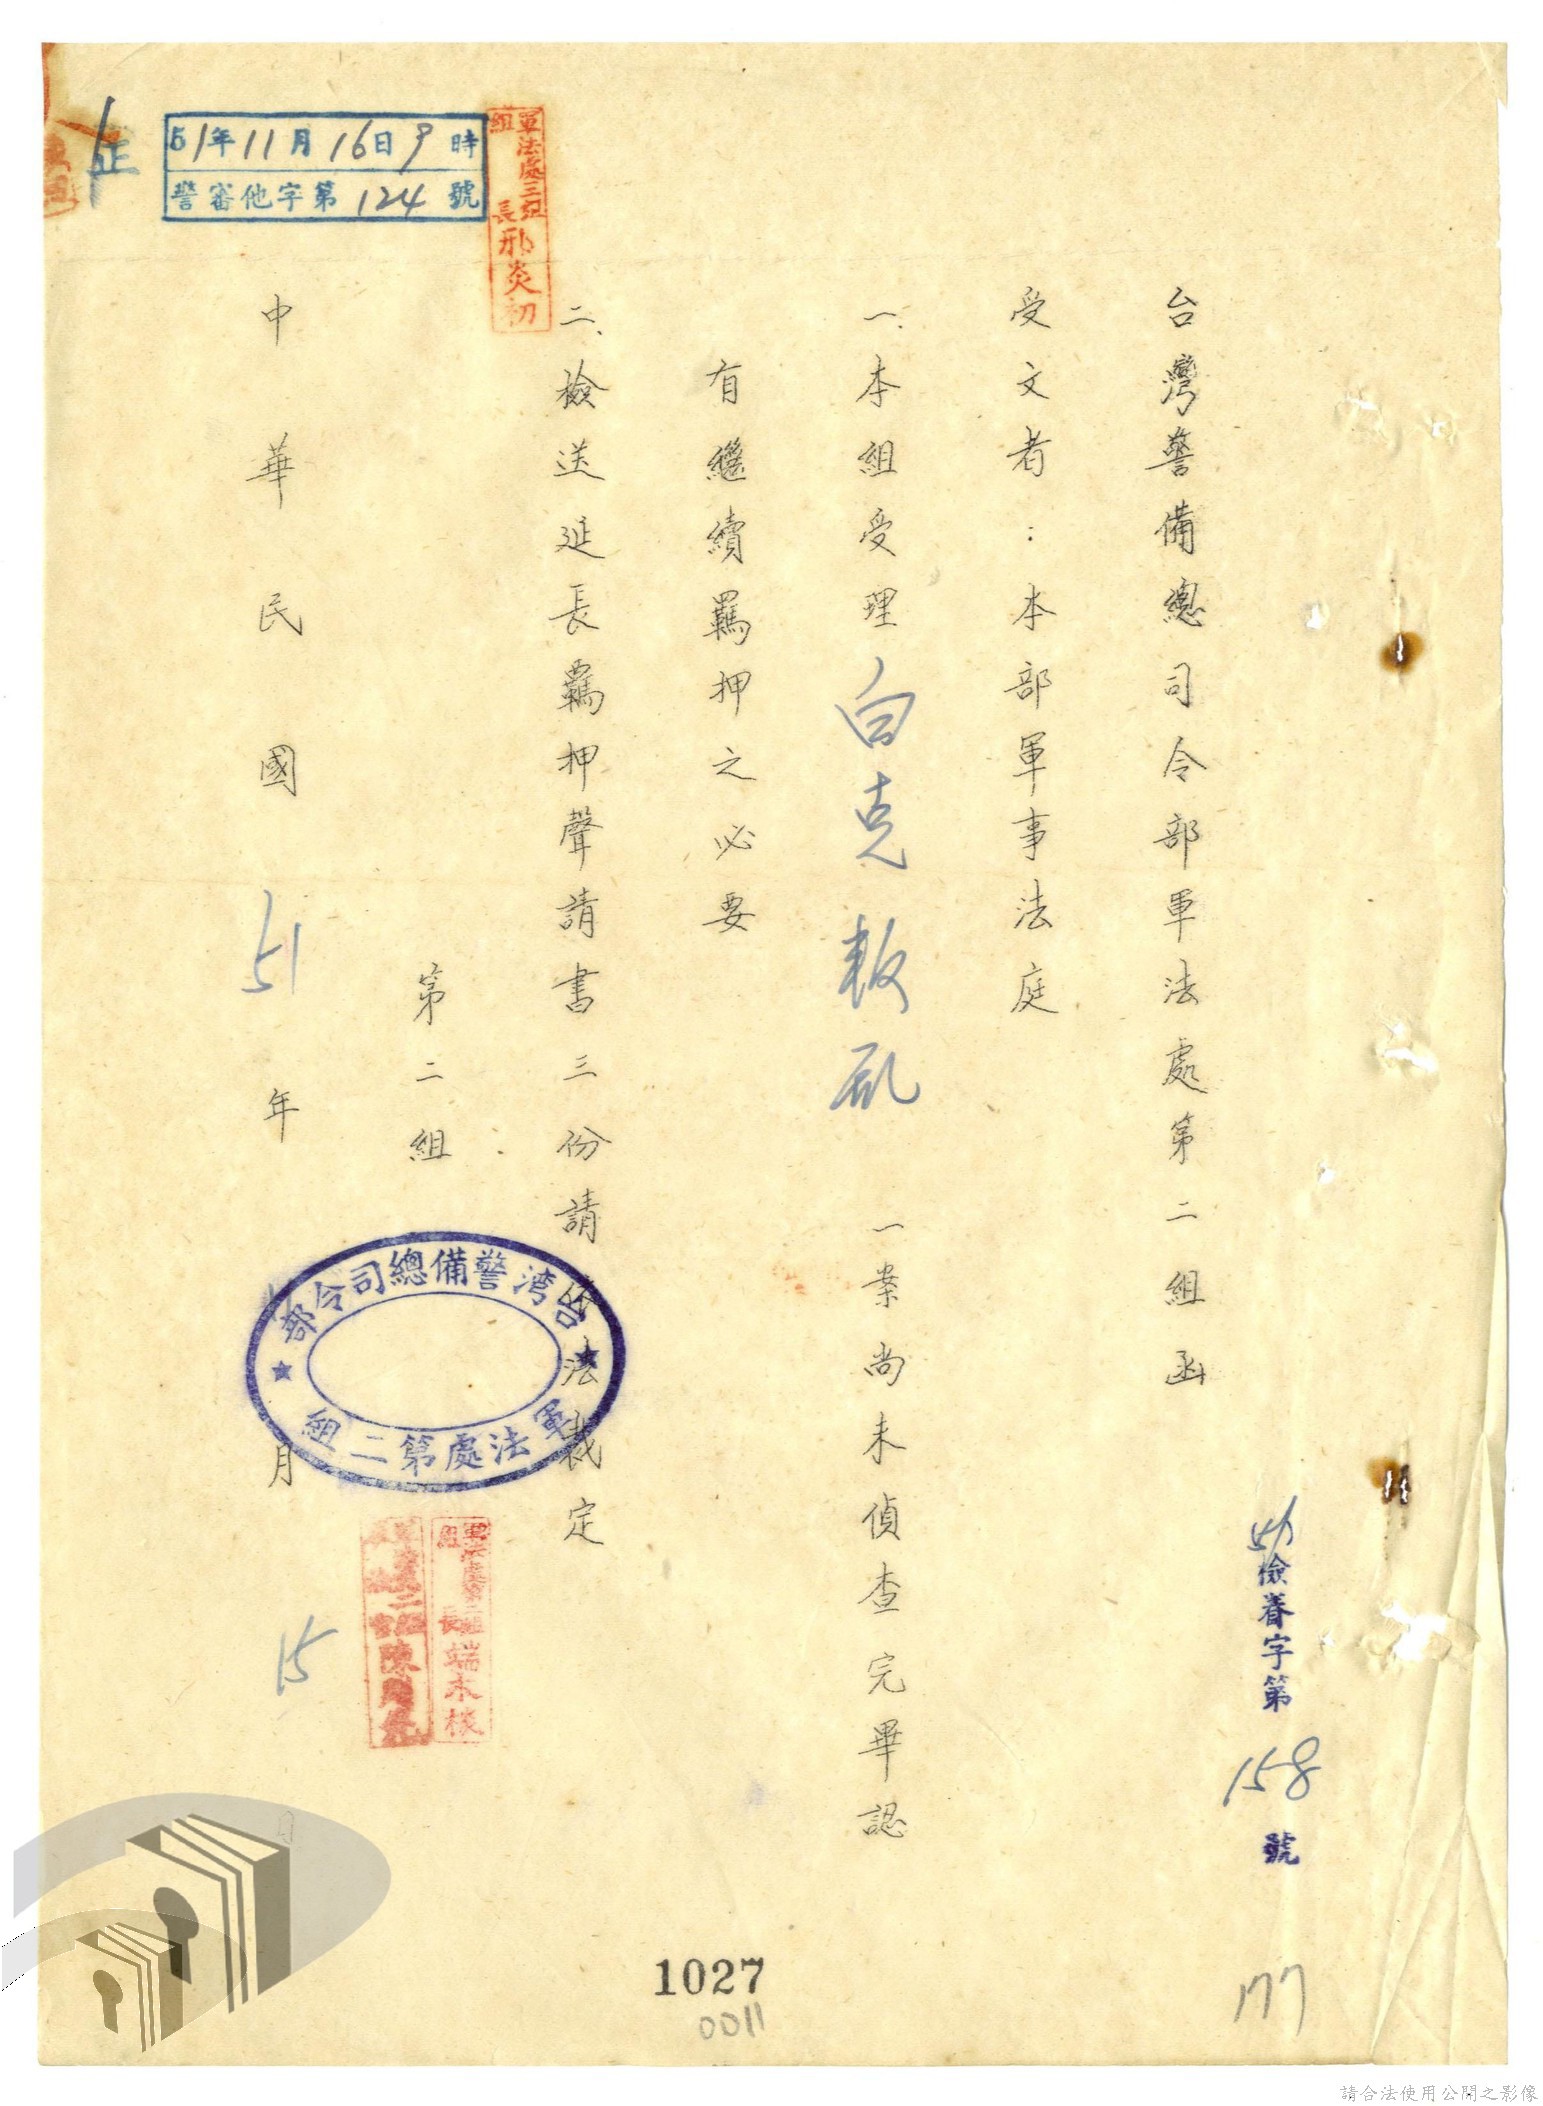 台灣警備總司令部軍法處第二組函
檢春字第158號
受文者：本部軍事法庭
一、本組受理白克叛乱一案尚未偵查完畢認
有繼續羈押之必要
二、檢送延長羈押聲請書三份請依法裁定
第二組
中華民國51年 月15日
51年11月16日9時
警審他字第124號
軍法處三組
組長邢炎初
台湾警備總司令部
軍法處第二組
組長端木棪
正
177
1027
0011
請合法使用公開之影像